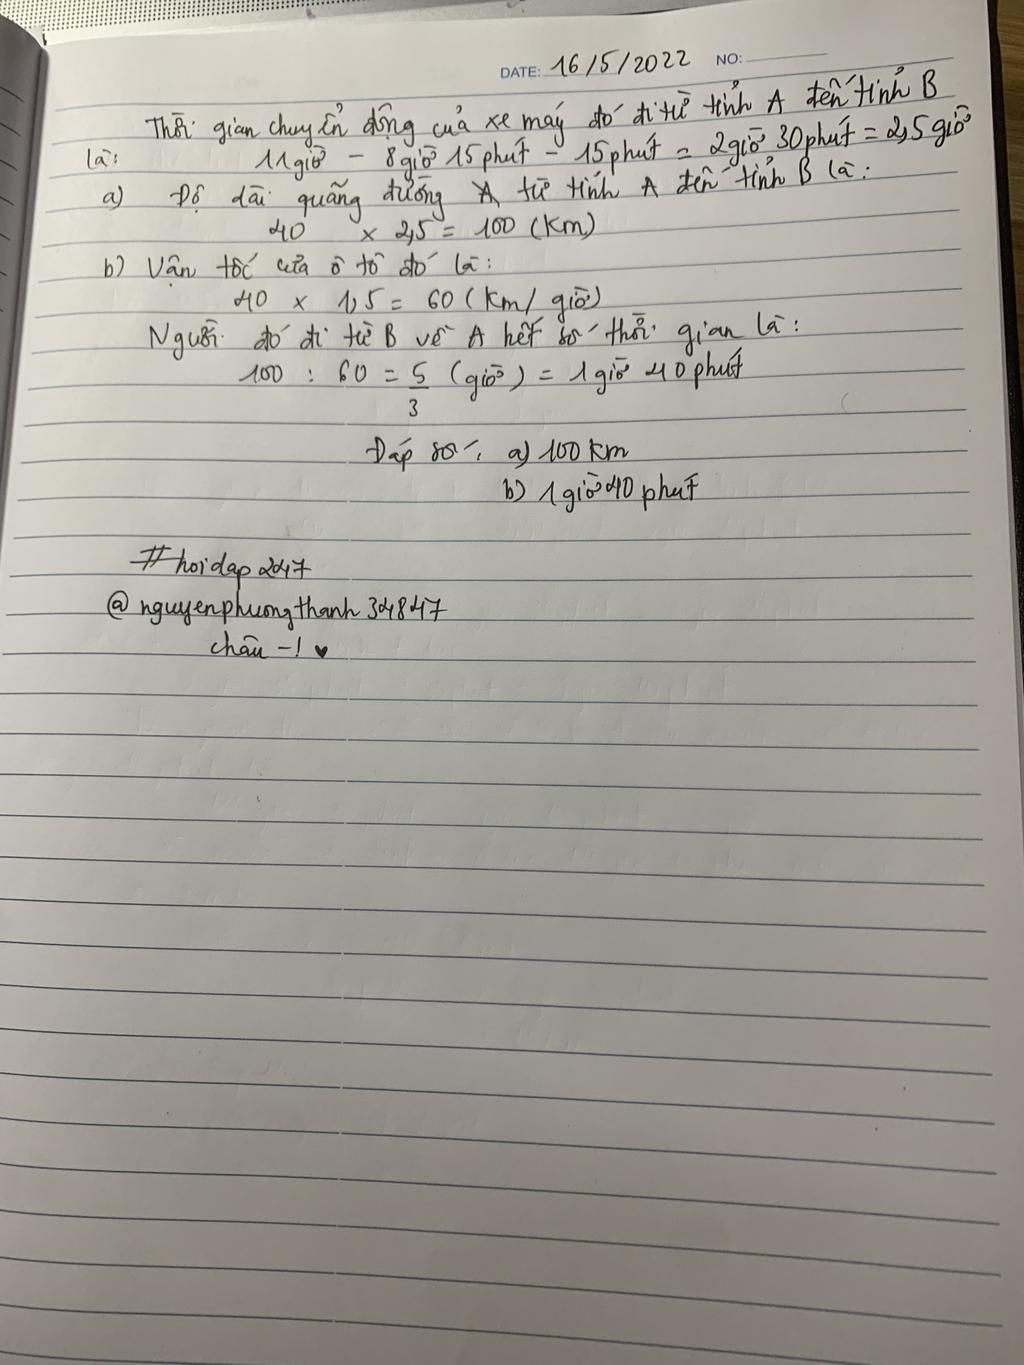 DATE: 16/5/2022 NO:
Thời gian chuyển động của xe máy đó đi từ tỉnh A đến tỉnh B
là: 11 giờ - 8 giờ 15 phút - 15 phút = 2 giờ 30 phút = 2,5 giờ
a) Độ dài quãng đường từ tỉnh A đến tỉnh B là:
40 x 2,5 = 100 (km)
b) Vận tốc của ô tô đó là:
40 x 1,5 = 60 (km/giờ)
Người đó đi từ B về A hết số thời gian là:
100 : 60 = 5/3 (giờ) = 1 giờ 40 phút
Đáp số: a) 100 km
b) 1 giờ 40 phút
#hoidap247
@nguyenphuongthanh34847
chău -! ♥